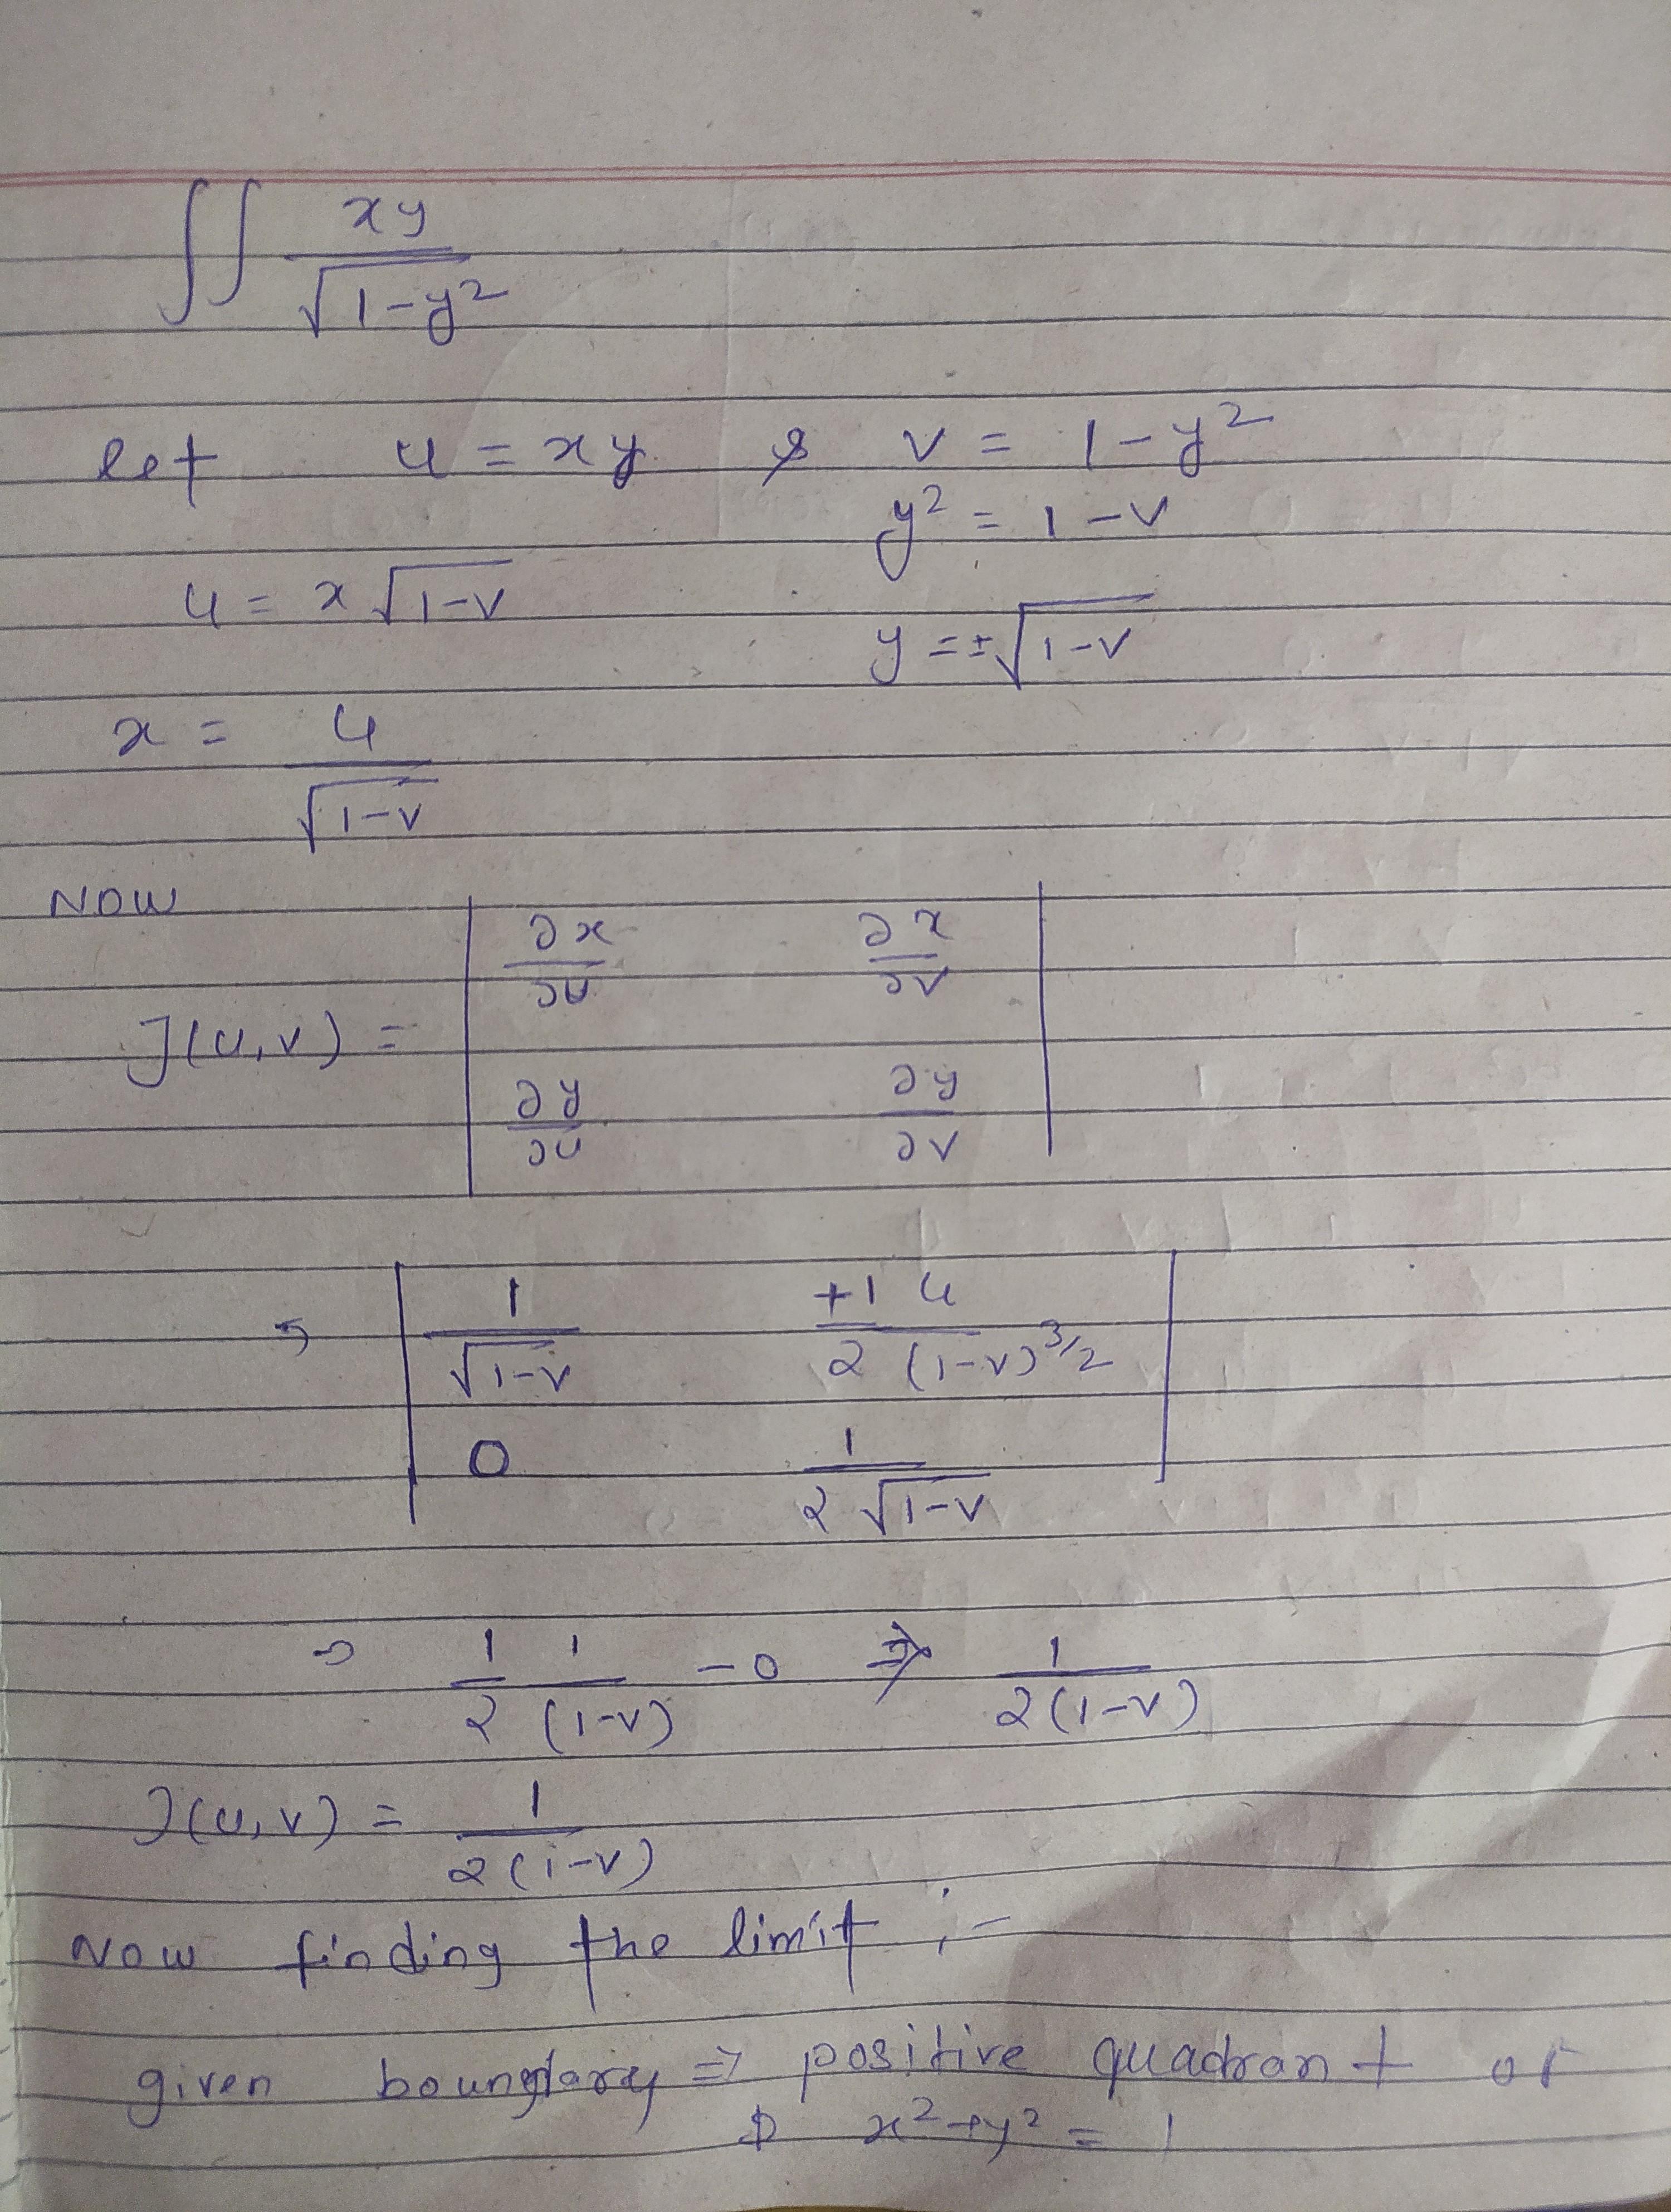 ∫∫ xy / √(1-y²)
let u = xy & v = 1-y²
y² = 1-v
u = x√(1-v)
y = ±√(1-v)
x = u / √(1-v)
NOW
J(u,v) = | ∂x/∂u ∂x/∂v |
| ∂y/∂u ∂y/∂v |
⇒ | 1/√(1-v) +1/2 u/(1-v)^3/2 |
| 0 1/(2√(1-v)) |
⇒ 1/2 1/(1-v) - 0 ⇒ 1/(2(1-v))
J(u,v) = 1/(2(1-v))
Now finding the limit :-
given boundary ⇒ positive quadrant of
x²+y² = 1